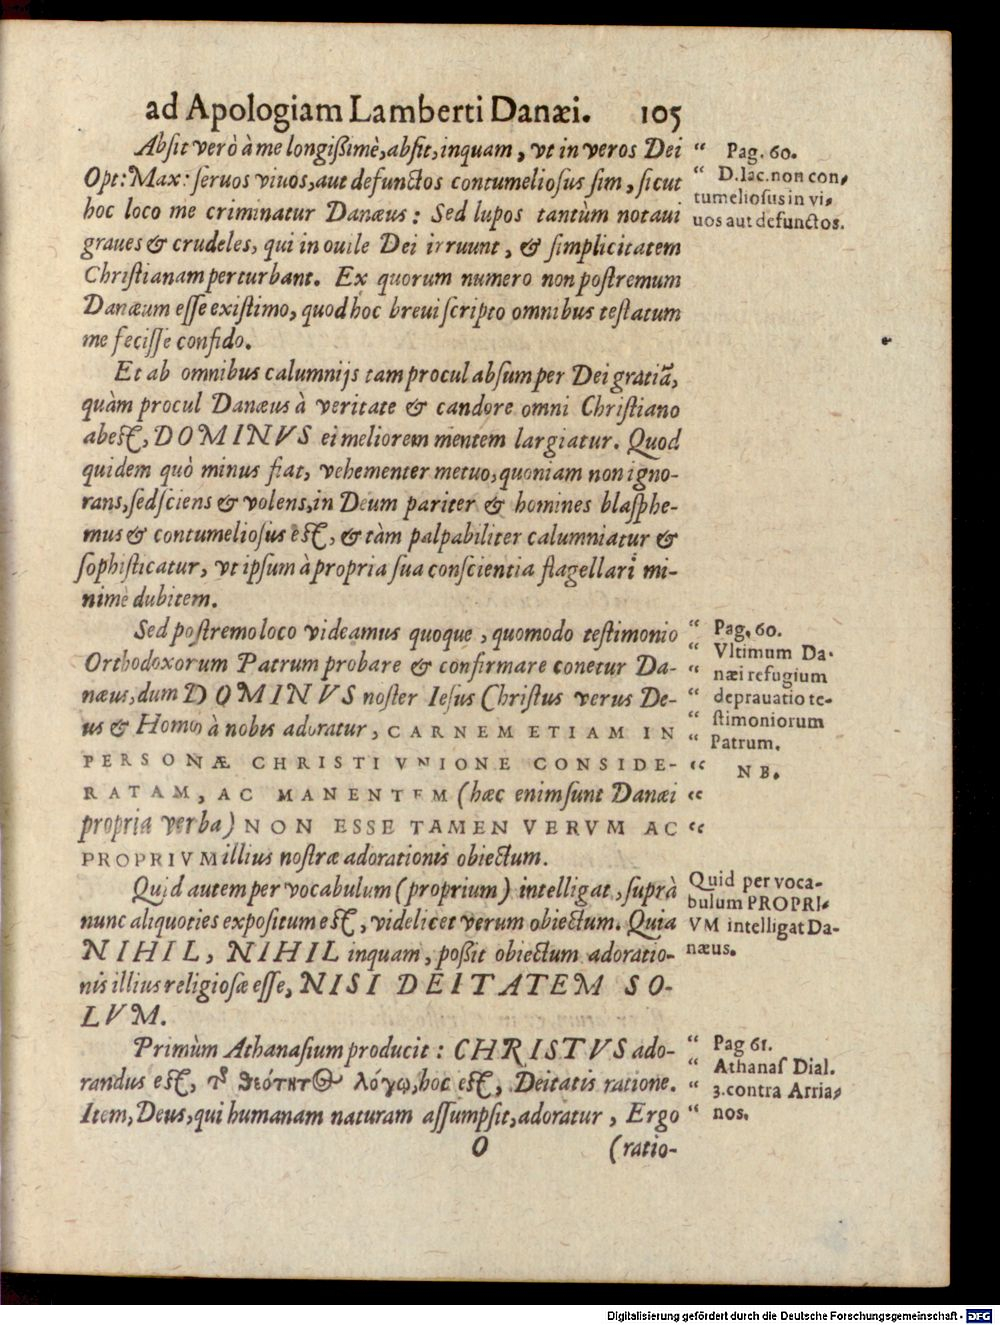 ad Apologiam Lamberti Danæi. 105
Absit verò à me longißimè, absit, inquam, vt in veros Dei
Opt: Max: seruos viuos, aut defunctos contumeliosus sim, sicut
hoc loco me criminatur Danæus: Sed lupos tantùm notaui
graues & crudeles, qui in ouile Dei irruunt, & simplicitatem
Christianam perturbant. Ex quorum numero non postremum
Danæum esse existimo, quod hoc breui scripto omnibus testatum
me fecisse confido.
“ Pag. 60.
“ D. Iac. non con-
tumeliosus in vi-
uos aut defunctos.
Et ab omnibus calumnijs tam procul absum per Dei gratiã,
quàm procul Danæus à veritate & candore omni Christiano
abest, DOMINVS ei meliorem mentem largiatur. Quod
quidem quò minus fiat, vehementer metuo, quoniam non igno-
rans, sed sciens & volens, in Deum pariter & homines blasphe-
mus & contumeliosus est, & tàm palpabiliter calumniatur &
sophisticatur, vt ipsum à propria sua conscientia flagellari mi-
nimè dubitem.
Sed postremo loco videamus quoque, quomodo testimonio
Orthodoxorum Patrum probare & confirmare conetur Da-
næus, dum DOMINVS noster Iesus Christus verus De-
us & Homo à nobis adoratur, CARNEM ETIAM IN
PERSONÆ CHRISTI VNIONE CONSIDE-
RATAM, AC MANENTEM (hæc enim sunt Danæi
propria verba) NON ESSE TAMEN VERVM AC
PROPRIVM illius nostræ adorationis obiectum.
“ Pag. 60.
“ Vltimum Da-
“ næi refugium
“ deprauatio te-
“ stimoniorum
“ Patrum.
“ N B.
“
“
Quid autem per vocabulum (proprium) intelligat, suprà
nunc aliquoties expositum est, videlicet verum obiectum. Quia
NIHIL, NIHIL inquam, poßit obiectum adoratio-
nis illius religiosæ esse, NISI DEITATEM SO-
LVM.
Quid per voca-
bulum PROPRI-
VM intelligat Da-
næus.
Primùm Athanasium producit: CHRISTVS ado-
randus est, τῷ θεότητος λόγῳ, hoc est, Deitatis ratione.
Item, Deus, qui humanam naturam assumpsit, adoratur, Ergo
“ Pag 61.
“ Athanas Dial.
“ 3. contra Arria-
“ nos.
O (ratio-
Digitalisierung gefördert durch die Deutsche Forschungsgemeinschaft - DFG